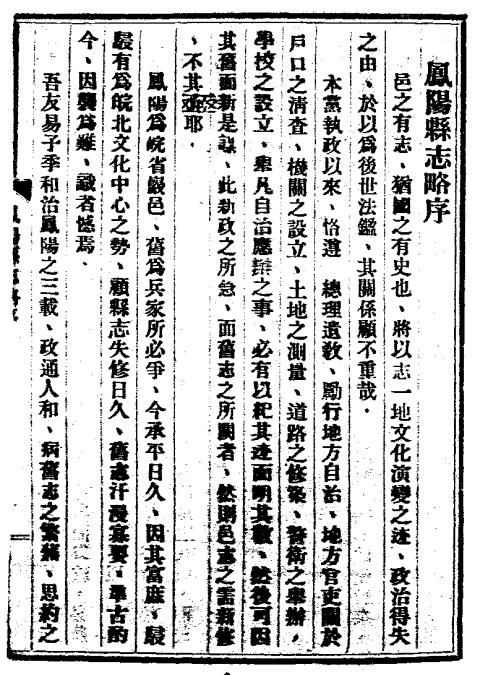 鳳陽縣志略序
邑之有志、猶國之有史也、將以志一地文化演變之迹、政治得失
之由、於以爲後世法鑑、其關係顧不重哉．
本黨執政以來、恪遵　總理遺教、勵行地方自治、地方官吏關於
戶口之清查、機關之設立、土地之測量、道路之修築、警衛之舉辦，
學校之設立、舉凡自治應辦之事、必有以紀其迹而明其數、然後可因
其舊而新是謀、此新政之所急、而舊志之所闕者、然則邑志之需新修
、不其亟耶．
鳳陽爲皖省嚴邑、舊爲兵家所必爭、今承平日久、因其富庶、駸
駸有爲皖北文化中心之勢、顧縣志失修日久、舊志汗漫寡要，準古酌
今、因襲爲難、識者憾焉．
吾友易子季和治鳳陽之三載、政通人和、病舊志之繁蕪、思約之